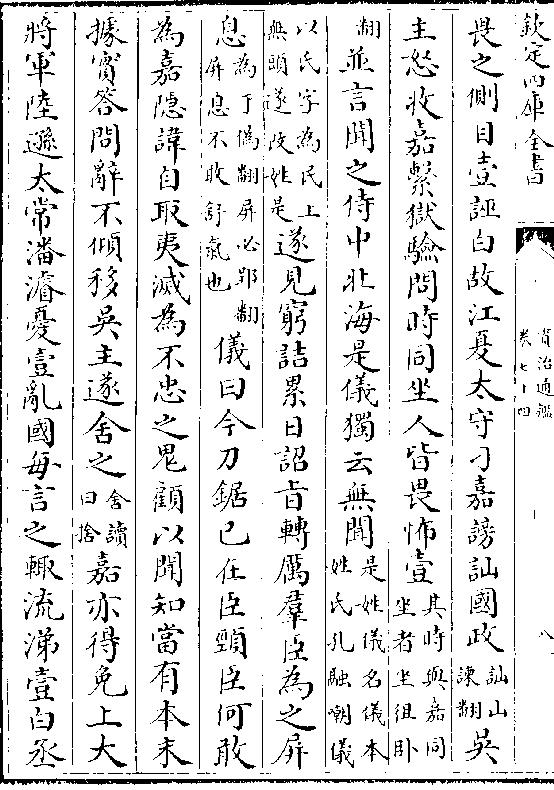 欽定四庫全書
資治通鑑
卷七十四
八
畏之側目壹誣白故江夏太守刁嘉謗訕國政訕山諫翻吳
主怒收嘉繫獄驗問時同坐人皆畏怖壹其時與嘉同坐者坐徂卧
翻並言聞之侍中北海是儀獨云無聞是姓儀名儀本姓氏孔融嘲儀
以氏字為民上無頭遂改姓是遂見窮詰累日詔旨轉厲羣臣為之屏
息為于偽翻屏必郢翻屏息不敢舒氣也儀曰今刀鋸已在臣頸臣何敢
為嘉隱諱自取夷滅為不忠之鬼顧以聞知當有本末
據實答問辭不傾移吳主遂舍之舍讀曰捨嘉亦得免上大
將軍陸遜太常潘濬憂壹亂國每言之輒流涕壹白丞